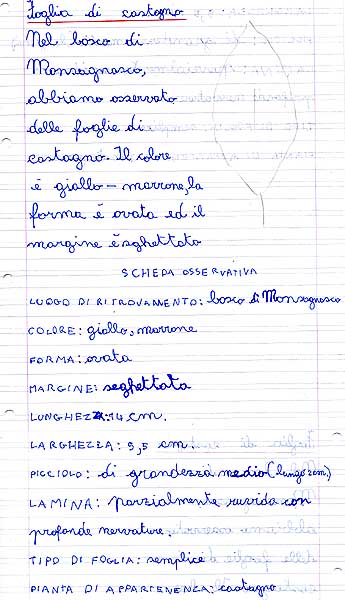 Foglia di castagno
Nel bosco di
Monsagnasco,
abbiamo osservato
delle foglie di
castagno. Il colore
é giallo - marrone, la
forma é ovata ed il
margine é sghettato
SCHEDA OSSERVATIVA
LUOGO DI RITROVAMENTO: bosco di Monsagnasco
COLORE: giallo, marrone
FORMA: ovata
MARGINE: seghettata
LUNGHEZZA: 14 cm.
LARGHEZZA: 5,5 cm.
PICCIOLO: di grandezza medio (lungo 2 cm.)
LAMINA: parzialmente ruvida con
profonde nervature
TIPO DI FOGLIA: semplice
PIANTA DI APPARTENENZA: castagno